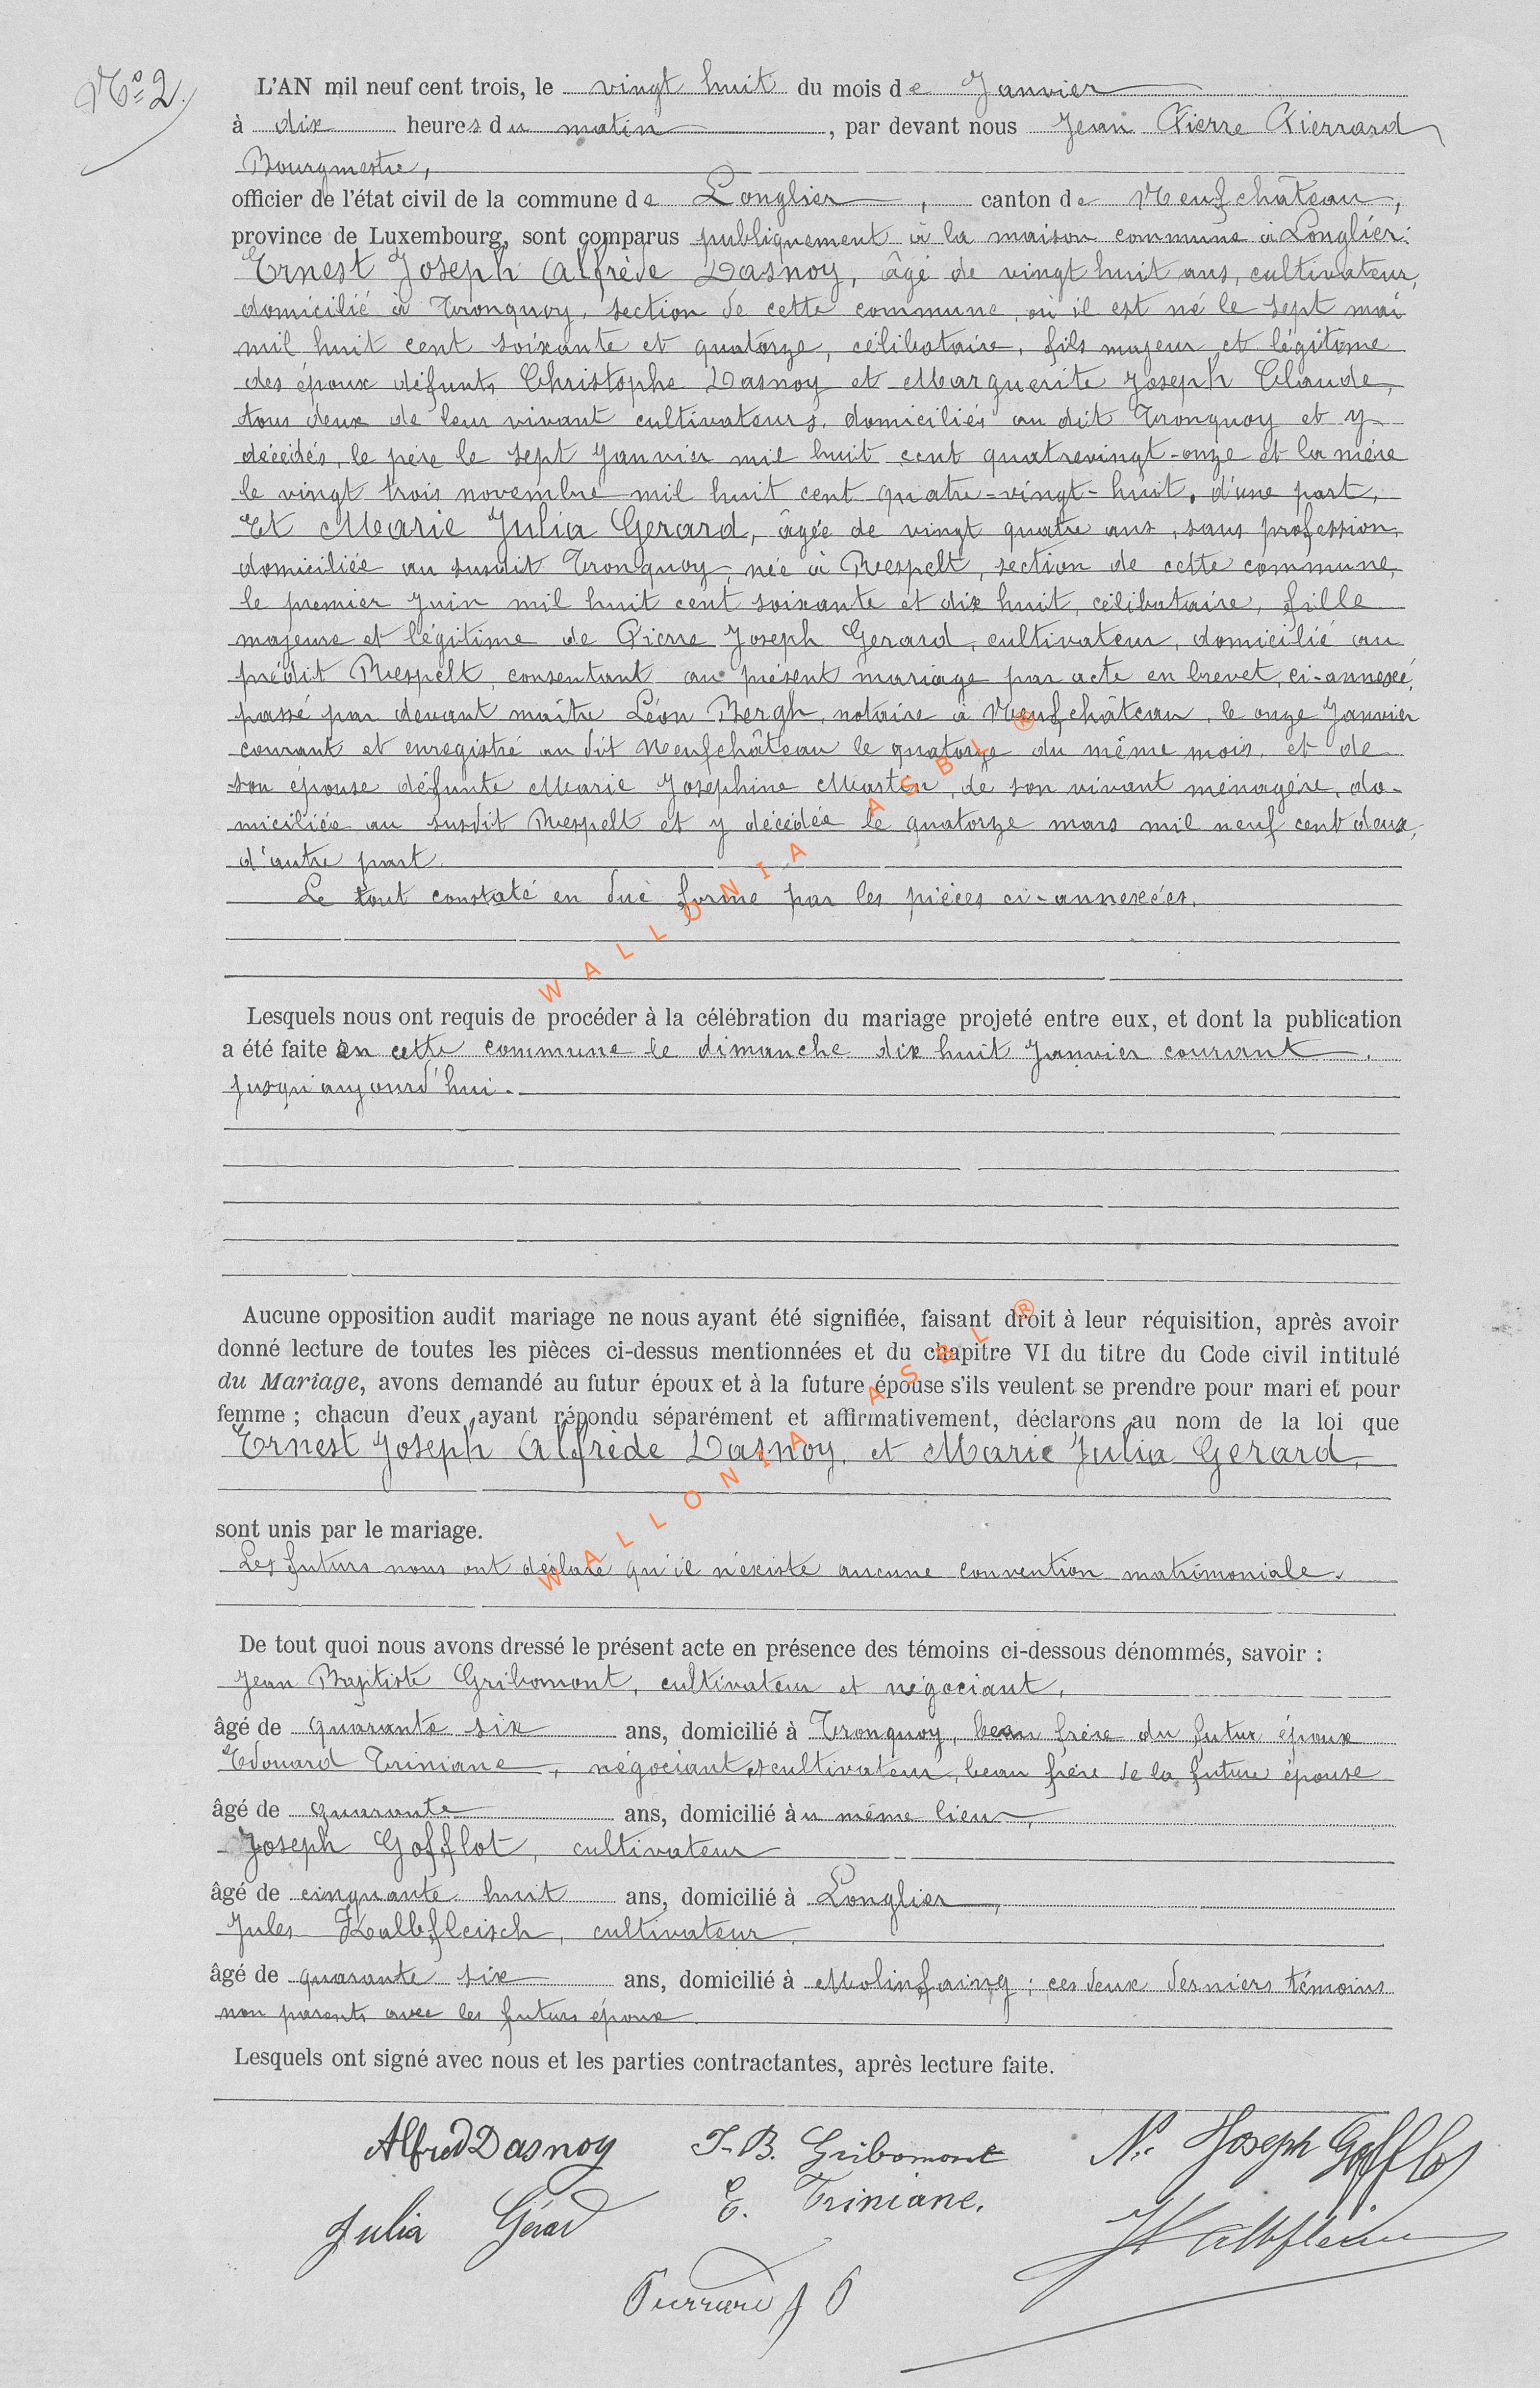 No 2.
L'AN mil neuf cent trois, le vingt huit du mois de Janvier
à dix heures du matin, par devant nous Jean Pierre Pierrard
Bourgmestre,
officier de l'état civil de la commune de Longlier, canton de Neufchâteau,
province de Luxembourg, sont comparus publiquement à la maison commune à Longlier:
Ernest Joseph Alfrède Dasnoy, âgé de vingt huit ans, cultivateur,
domicilié à Tronquoy, section de cette commune, où il est né le sept mai
mil huit cent soixante et quatorze, célibataire, fils majeur et légitime
des époux défunts Christophe Dasnoy et Marguerite Joseph Claude,
tous deux de leur vivant cultivateurs, domiciliés au dit Tronquoy et y
décédés, le père le sept Janvier mil huit cent quatrevingt-onze et la mère
le vingt trois novembre mil huit cent quatre-vingt-huit, d'une part,
Et Marie Julia Gerard, âgée de vingt quatre ans, sans profession,
domiciliée au susdit Tronquoy, née à Respelt, section de cette commune,
le premier Juin mil huit cent soixante et dix huit, célibataire, fille
majeure et légitime de Pierre Joseph Gerard, cultivateur, domicilié au
prédit Respelt, consentant au présent mariage par acte en brevet, ci-annexé,
passé par devant maître Léon Bergh, notaire à Neufchâteau, le onze Janvier
courant et enregistré au dit Neufchâteau le quatorze du même mois, et de
son épouse défunte Marie Joséphine Martin, de son vivant ménagère, do-
miciliée au susdit Respelt et y décédée le quatorze mars mil neuf cent deux,
d'autre part.
Le tout constaté en due forme par les pièces ci-annexées.
Lesquels nous ont requis de procéder à la célébration du mariage projeté entre eux, et dont la publication
a été faite en cette commune le dimanche dix huit Janvier courant,
jusqu'aujourd'hui.
Aucune opposition audit mariage ne nous ayant été signifiée, faisant droit à leur réquisition, après avoir
donné lecture de toutes les pièces ci-dessus mentionnées et du chapitre VI du titre du Code civil intitulé
du Mariage, avons demandé au futur époux et à la future épouse s'ils veulent se prendre pour mari et pour
femme ; chacun d'eux ayant répondu séparément et affirmativement, déclarons au nom de la loi que
Ernest Joseph Alfrède Dasnoy, et Marie Julia Gerard,
sont unis par le mariage.
Les futurs nous ont déclaré qu'il n'existe aucune convention matrimoniale.
De tout quoi nous avons dressé le présent acte en présence des témoins ci-dessous dénommés, savoir :
Jean Baptiste Gribomont, cultivateur et négociant,
âgé de quarante six ans, domicilié à Tronquoy, beau frère du futur époux
Edouard Triniane, négociant et cultivateur, beau frère de la future épouse
âgé de quarante ans, domicilié au même lieu,
Joseph Gofflot, cultivateur
âgé de cinquante huit ans, domicilié à Longlier,
Jules Kalbfleisch, cultivateur,
âgé de quarante six ans, domicilié à Molinfaing ; ces deux derniers témoins
non parents avec les futurs époux.
Lesquels ont signé avec nous et les parties contractantes, après lecture faite.
Alfred Dasnoy J-B. Gribomont N. Joseph Gofflot
Julia Gérard E. Triniane. J Kalbfleisch
Pierrard J P
WALLONIA ASBL ®
WALLONIA ASBL ®